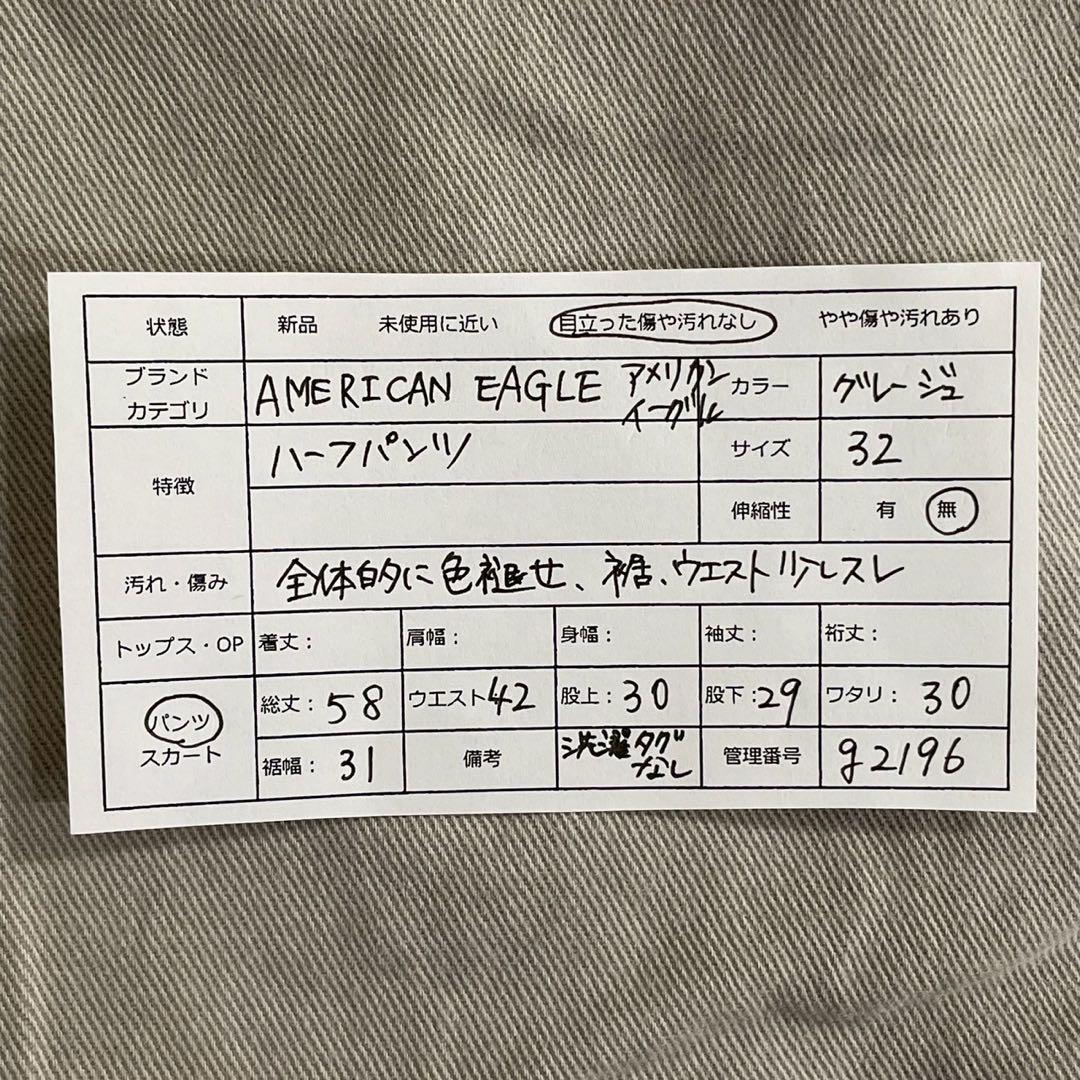 状態 新品 未使用に近い 目立った傷や汚れなし やや傷や汚れあり
ブランド
カテゴリ
AMERICAN EAGLE アメリカン
イーグル
カラー グレージュ
特徴 ハーフパンツ サイズ 32
伸縮性 有 無
汚れ・傷み 全体的に色褪せ、裾、ウエストリ少しスレ
トップス・OP 着丈: 肩幅: 身幅: 袖丈: 裄丈:
パンツ
スカート
総丈: 58 ウエスト42 股上: 30 股下: 29 ワタリ: 30
裾幅: 31 備考 洗濯タグ
なし
管理番号 g2196